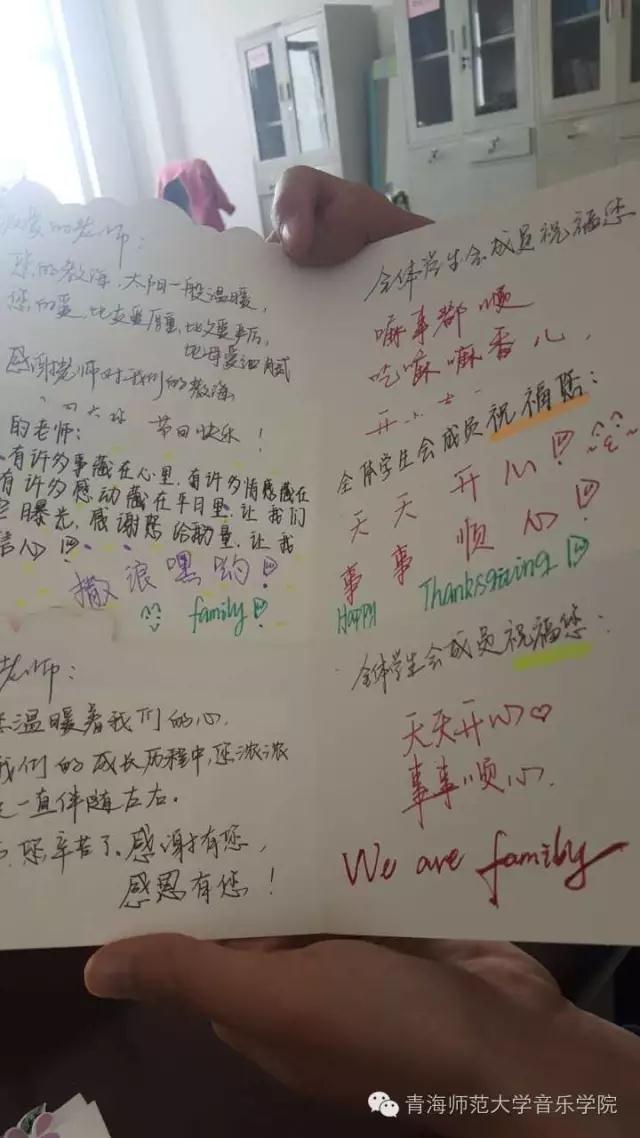 的老师：
您的教诲，太阳一般温暖，
您的爱，比友爱厚重，比父爱
感谢老师对我们的教诲
节日快乐！
的老师：
有许多事藏在心里，有许多情感藏在
有许多感动藏在平日里，让我们
曝光，感谢您给的力量，让我
信心
撒浪嘿哟
family
老师：
温暖着我们的心，
我们的成长历程中，您浓浓
一直伴随左右。
您辛苦了。感谢有您，
感恩有您！
全体学生会成员祝福您
嘛事都顺
吃嘛嘛香儿，
开
全体学生会成员祝福您：
天天开心
事事顺心
Happy Thanksgiving
全体学生会成员祝福您：
天天开心
事事顺心
We are family
青海师范大学音乐学院